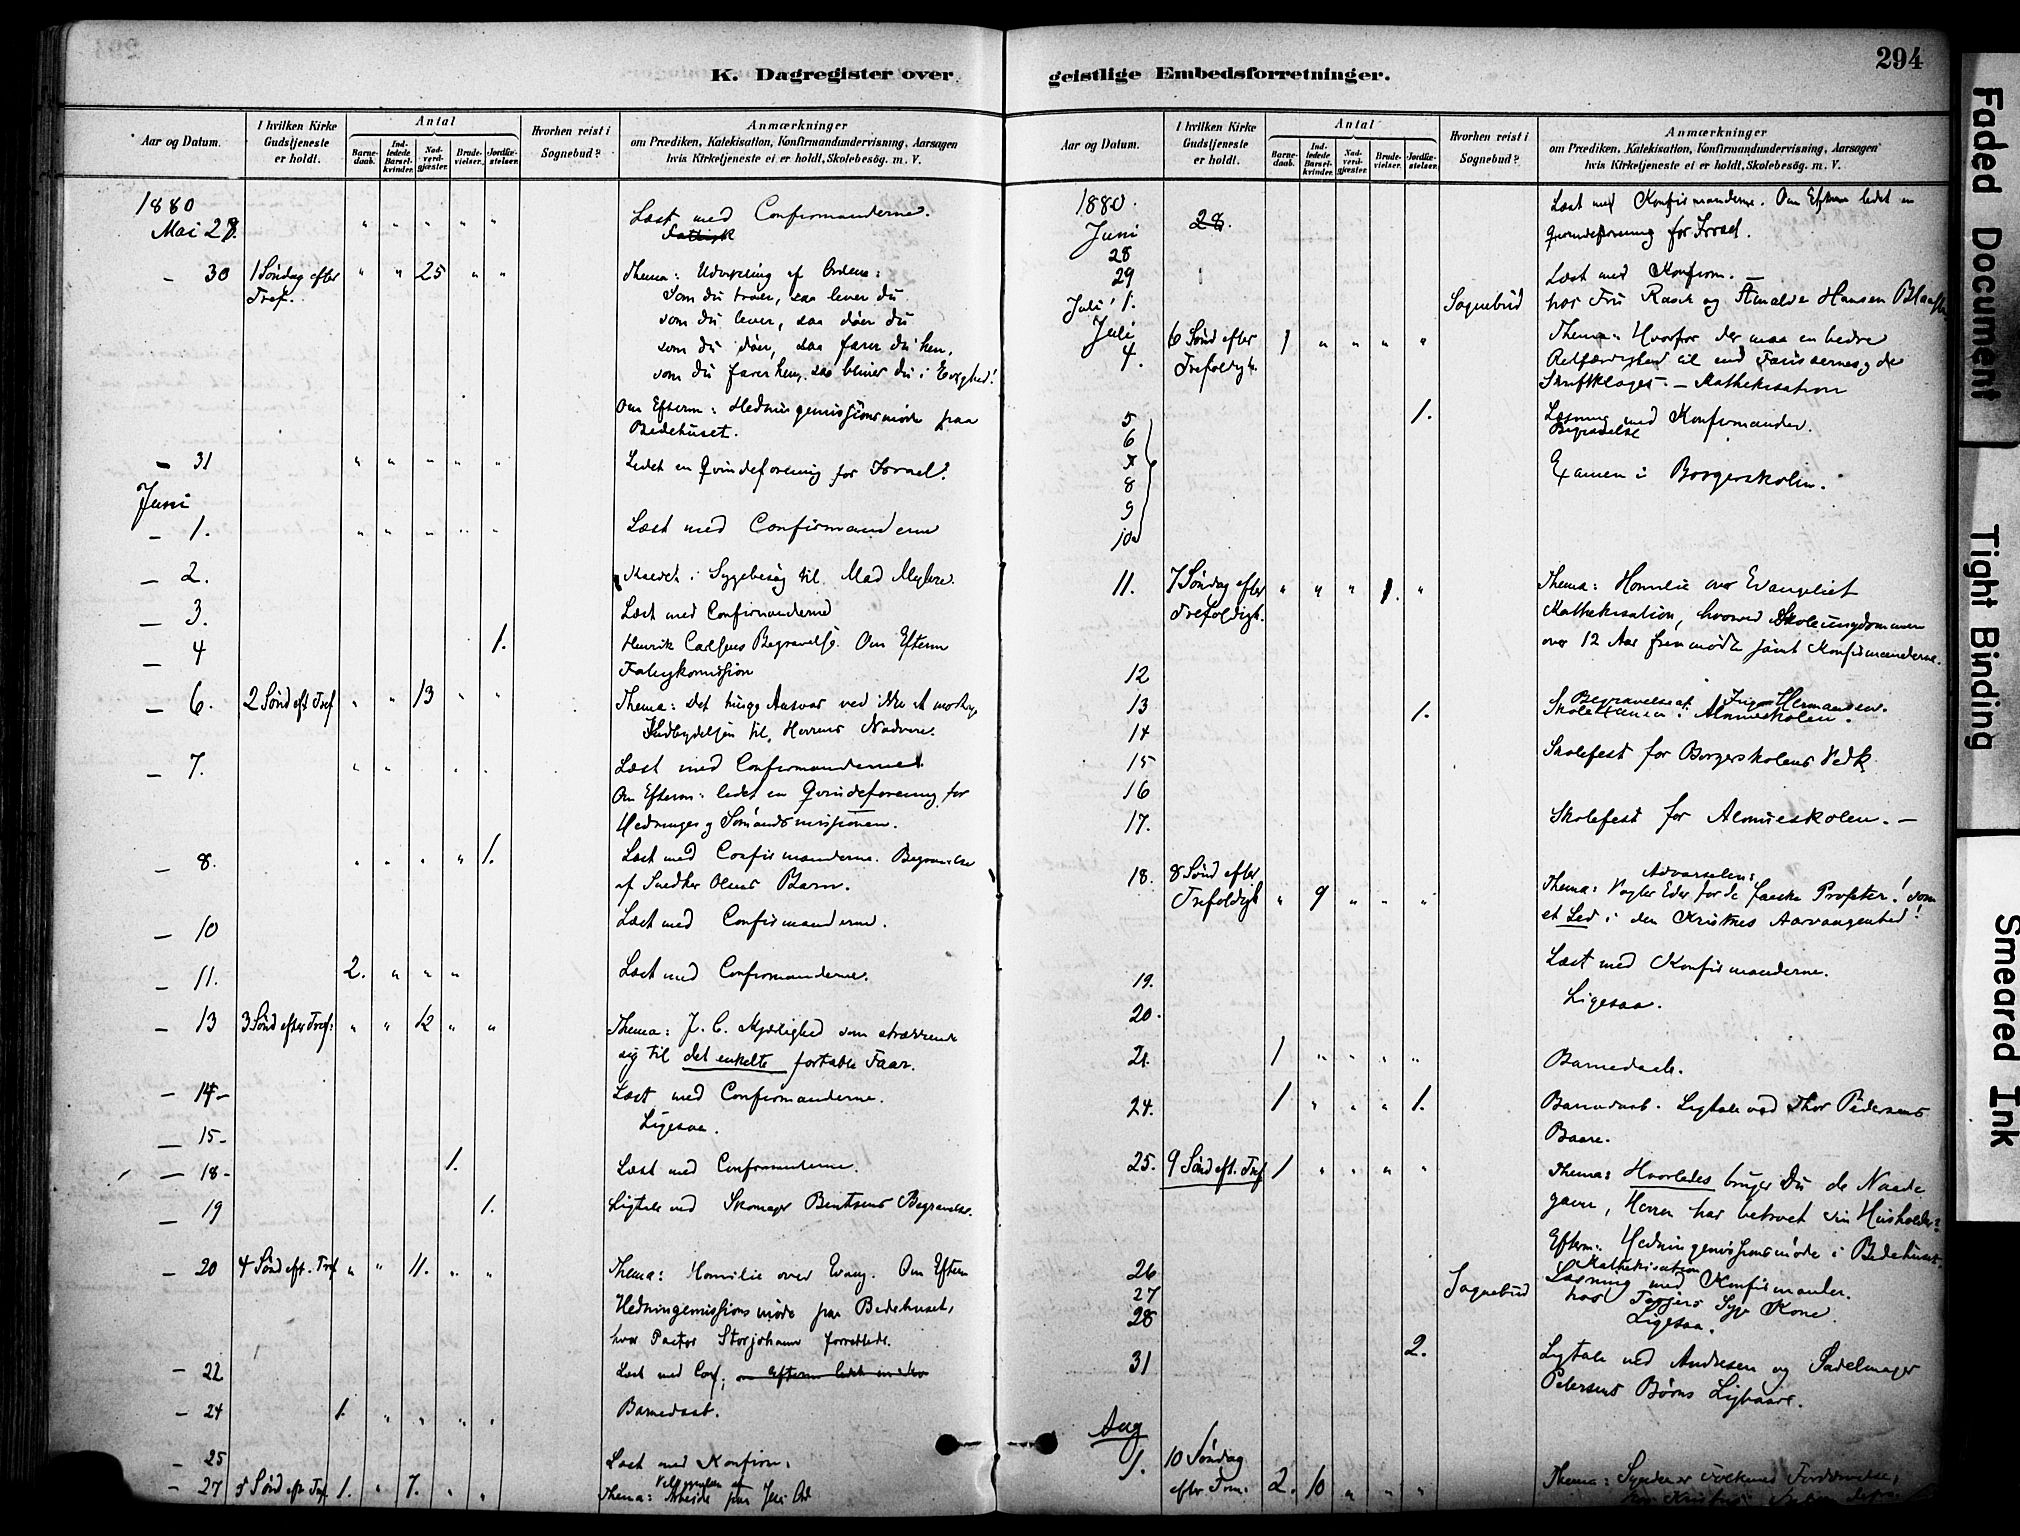 294
K. Dagregister over
geistlige Embedsforretninger.
Aar og Datum.
I hvilken Kirke Gudstjeneste er holdt.
Antal
Barnedaab.
Indledede Barselkvinder.
Nadverdgjæster.
Brudevielser.
Jordfæstelser.
Hvorhen reist i Sognebud?
Anmærkninger
om Prædiken, Katekisation, Konfirmandundervisning, Aarsagen
hvis Kirketjeneste ei er holdt, Skolebesøg. m. V.
1880
Mai 28. " " " " " Læst med Confirmanderne.
- 30 1 Søndag efter " " 25 " " Thema: Udvikling af Ordene:
Tref. Som du troer, saa lever du
som du lever, saa døer du
som du døer, saa farer du hen,
som du farer hen, saa bliver du i Evighed!
Om Efterm: Hedningemissionsmøde paa
Bedehuset.
- 31 " " " " " Ledet en Qvindeforening for Israel.
Juni
- 1. " " " " Læst med Confirmanderne
- 2. i Sygebesøg til Mad
- 3. Læst med Confirmanderne
- 4 1. Henrik Carlsens Begravelse. Om Efterm
- 6. 2 Sønd eft Tref " " 13 " " Thema: Det Ansvar ved ikke at
til Herrens Nadvere.
- 7. " " " " Læst med Confirmanderne
Om Efterm: ledet en Qvindeforening for
Hedninge og Sømandsmissionen.
- 8. " " " " 1. Læst med Confirmanderne. Begravelse
af Snedker Olsens Barn.
- 10 Læst med Confirmanderne.
- 11. 2. " " " Læst med Confirmanderne.
- 13 3 Sønd efter Tref: " " 12 " " Thema: J. C. Kjærlighed som
sig til det enkelte fortabte Faar.
- 14 - Læst med Confirmanderne.
- 15 - Ligesaa.
- 18 - 1. Læst med Confirmanderne.
- 19 1. Ligtale ved Skomager Bentsens Begravelse.
- 20 4 Sønd eft. Tref " " 11. " " Thema: Homilie over Evang. Om Efterm
Hedningemissionsmøde paa Bedehuset,
hvor Pastor Storjohann forrettede.
- 22 Læst med Conf;
- 24 1. " " " " Barnedaab.
- 25 Læst med Konfirm:
- 27 5 Sønd eft Tref 1. " 7. " " Thema: Arbeide paa Jesu Ord
Aar og Datum.
I hvilken Kirke Gudstjeneste er holdt.
Antal
Barnedaab.
Indledede Barselkvinder.
Nadverdgjæster.
Brudevielser.
Jordfæstelser.
Hvorhen reist i Sognebud?
Anmærkninger
om Prædiken, Katekisation, Konfirmandundervisning, Aarsagen
hvis Kirketjeneste ei er holdt, Skolebesøg. m. V.
1880. Læst med Konfirmanderne. Om Efterm ledet en
Juni 28. Qvindeforening for Israel.
28
29 Læst med Konfirm. -
Juli 1. Sognebud hos Fru Rasch og Hansen
Juli 6 Sønd efter 1 " " " " Thema: Hvorfor der maa en bedre
4. Trefoldigh. Retfærdighed til end Farisæernes og de
Skriftkloges. - Kathekisation
5 1. Læsning med Konfirmander.
Begravelse
6
7
8 Examen i Borgerskolen.
9
10
11. 7 Søndag efter " " " 1. " Thema: Homilie over Evangeliet
Trefoldigh. Kathekisation, hvorved Skoleungdommen
over 12 Aar fremmødte samt Konfirmanderne.
12
13 1. Begravelse af Hermansen.
Skoleexamen i Almueskolen.
14
15 Skolefest for Borgerskolens Vedk.
16
17. Skolefest for Almueskolen. -
18. 8 Sønd efter Advarselen:
Trefoldigh " 9 " " " Thema: Vogter Eder for de falske Profeter! som
et Led i den Kristnes Aarvaagenhed!
19. Læst med Konfirmanderne.
20. Ligesaa.
21. 1 " " " " Barnedaab.
24. 1 " " " 1. Barnedaab. Ligtale ved Thor Pedersens
Baare.
25. 9 Sønd eft. Tref 1 " " " " Thema: Hvorledes bruger Du de Naade
gaver, Herren har betroet sin Husholder?
Efterm: Hedningemissionsmøde i Bedehuset.
Kathekisation
26 Læsning med Konfirmander.
27 Sognebud hos syge Kone.
28 Ligesaa.
31 2. Ligtale ved Andresen og Sadelmager
Petersens Børns Ligbaare.
Aug
1. 10 Søndag Thema:
efter Trin. 2. 10 " " "
Faded Document
Tight Binding
Smeared Ink